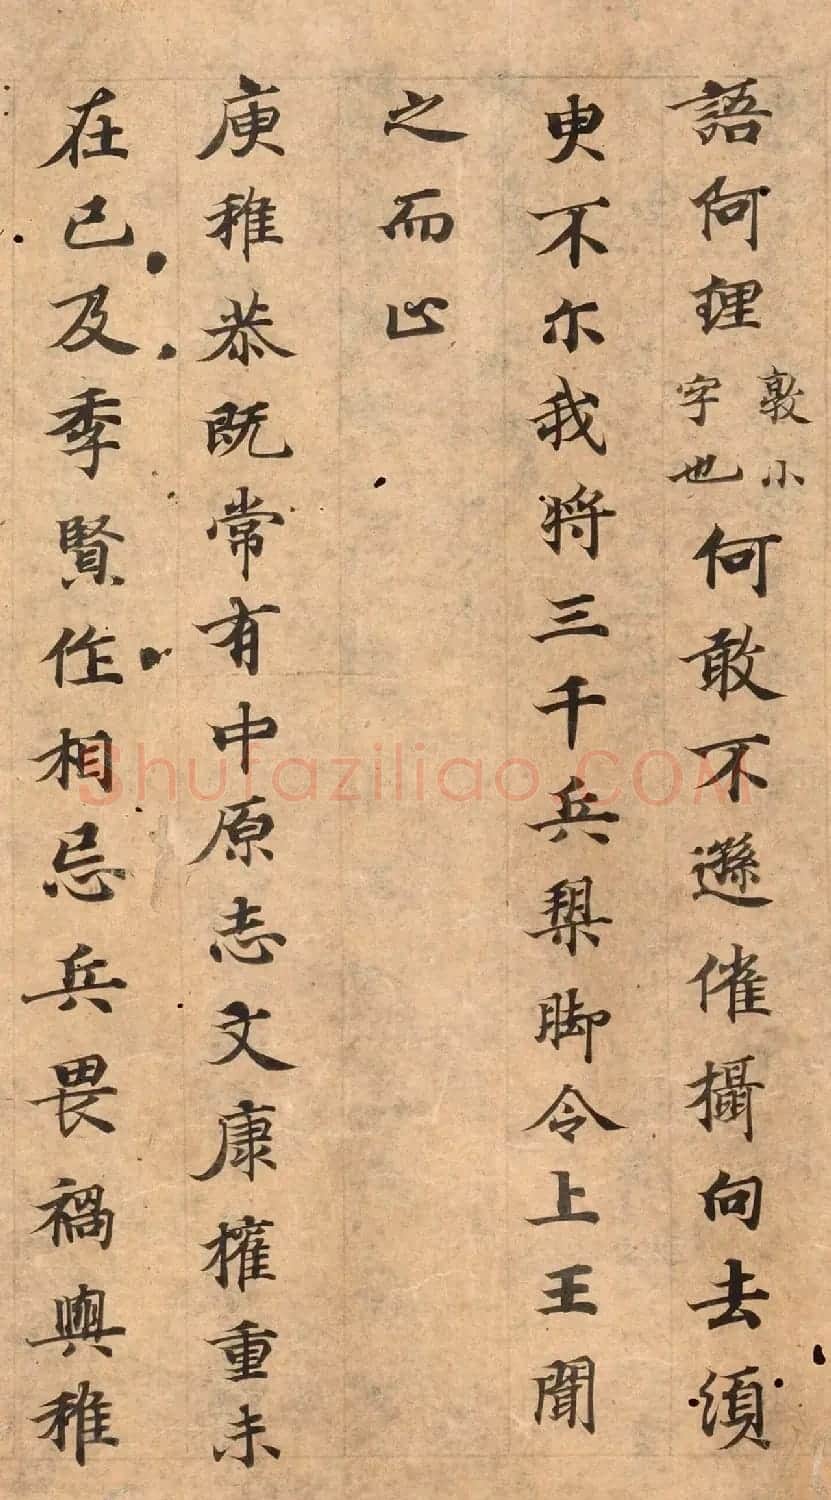 語阿理
敦小
字也
何敢不遜催攝向去須
臾不尔我将三千兵槊脚令上王聞
之而止
庾稚恭既常有中原志文康權重未
在己及季賢作相忌兵畏禍與稚
Shufaziliao.COM